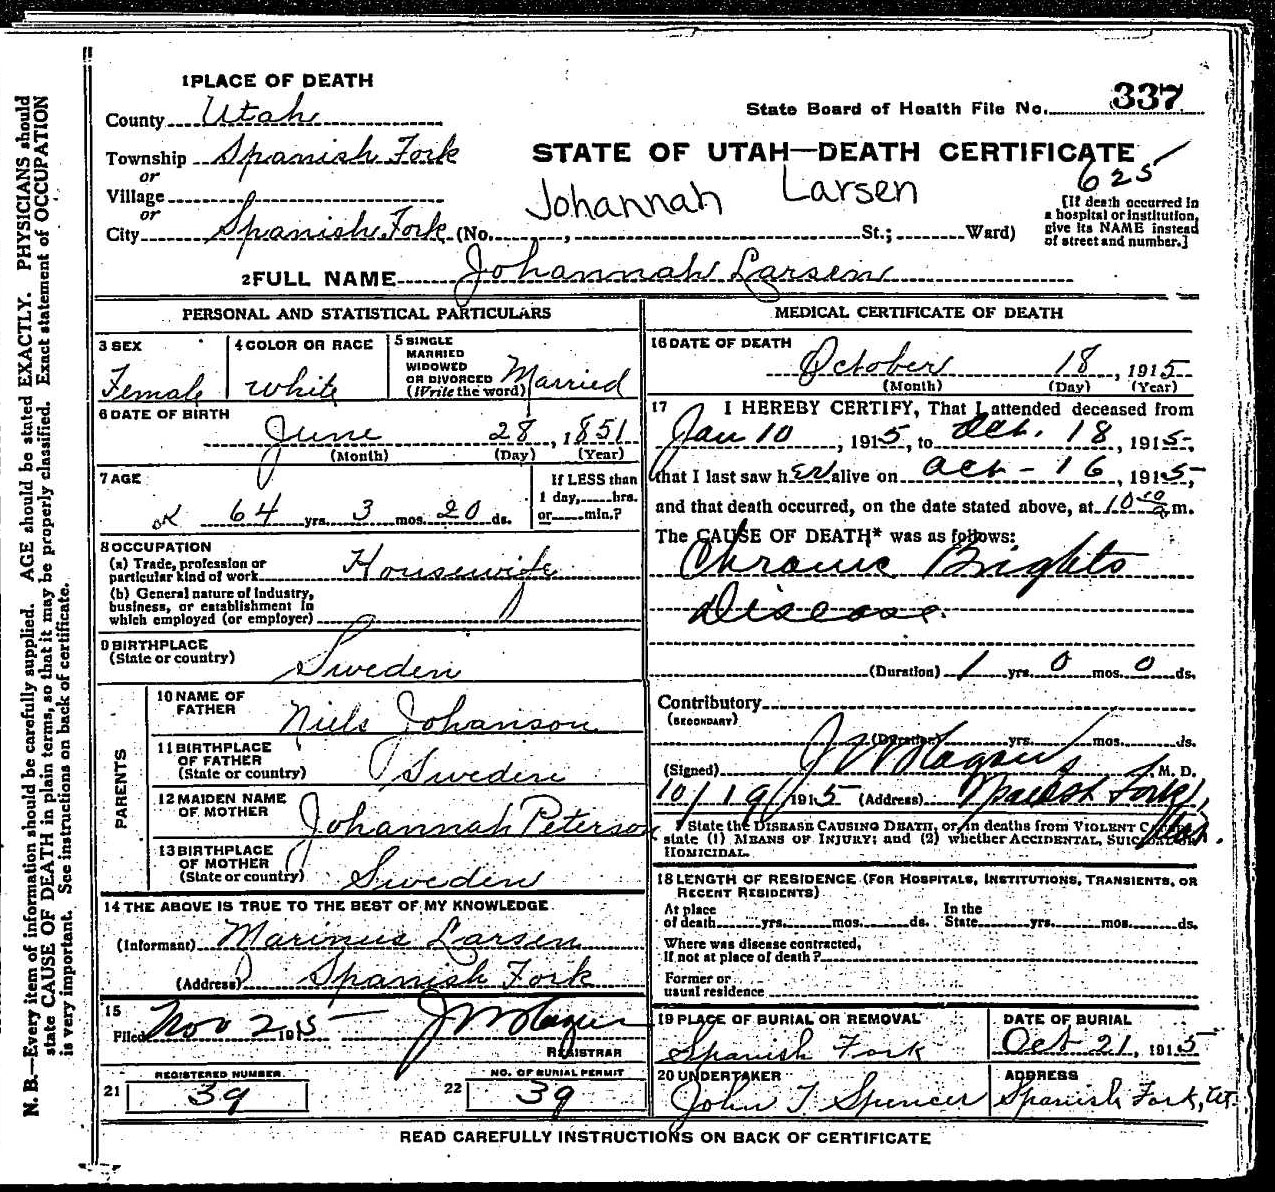 1 PLACE OF DEATH
State Board of Health File No. 337
County Utah
Township Spanish Fork
or
Village
or
City Spanish Fork (No. , St.; Ward)
STATE OF UTAH—DEATH CERTIFICATE
625
Johannah Larsen
[If death occurred in
a hospital or institution,
give its NAME instead
of street and number.]
2 FULL NAME Johannah Larsen
PERSONAL AND STATISTICAL PARTICULARS
3 SEX
Female
4 COLOR OR RACE
White
5 SINGLE
MARRIED
WIDOWED
OR DIVORCED
(Write the word)
Married
6 DATE OF BIRTH
June 28, 1851
(Month) (Day) (Year)
7 AGE
ok 64 yrs. 3 mos. 20 ds.
If LESS than
1 day, hrs.
or min.?
8 OCCUPATION
(a) Trade, profession or
particular kind of work Housewife
(b) General nature of industry,
business, or establishment in
which employed (or employer)
9 BIRTHPLACE
(State or country) Sweden
PARENTS
10 NAME OF
FATHER Niels Johanson
11 BIRTHPLACE
OF FATHER
(State or country) Sweden
12 MAIDEN NAME
OF MOTHER Johannah Peterson
13 BIRTHPLACE
OF MOTHER
(State or country) Sweden
14 THE ABOVE IS TRUE TO THE BEST OF MY KNOWLEDGE
(Informant) Marinus Larsen
(Address) Spanish Fork
15
Filed Nov 2 1915 J W Hagan
REGISTRAR
REGISTERED NUMBER
21 39
NO. OF BURIAL PERMIT
22 39
MEDICAL CERTIFICATE OF DEATH
16 DATE OF DEATH
October 18, 1915
(Month) (Day) (Year)
17 I HEREBY CERTIFY, That I attended deceased from
Jan 10, 1915, to Oct. 18, 1915,
that I last saw her alive on Oct - 16, 1915,
and that death occurred, on the date stated above, at 10 a m.
The CAUSE OF DEATH* was as follows:
Chronic Brights
Disease.
(Duration) 1 yrs. 0 mos. 0 ds.
Contributory
(SECONDARY)
(Duration) yrs. mos. ds.
(Signed) J W Hagan M. D.
10/19/1915 (Address) Spanish Fork, Utah.
* State the DISEASE CAUSING DEATH, or, in deaths from VIOLENT CAUSES,
state (1) MEANS OF INJURY; and (2) whether ACCIDENTAL, SUICIDAL OR
HOMICIDAL.
18 LENGTH OF RESIDENCE (FOR HOSPITALS, INSTITUTIONS, TRANSIENTS, OR
RECENT RESIDENTS)
At place
of death yrs. mos. ds.
In the
State yrs. mos. ds.
Where was disease contracted,
If not at place of death?
Former or
usual residence
19 PLACE OF BURIAL OR REMOVAL
Spanish Fork
DATE OF BURIAL
Oct 21, 1915
20 UNDERTAKER
John T Spencer
ADDRESS
Spanish Fork, Ut.
READ CAREFULLY INSTRUCTIONS ON BACK OF CERTIFICATE
N. B.—Every item of information should be carefully supplied. AGE should be stated EXACTLY. PHYSICIANS should
state CAUSE OF DEATH in plain terms, so that it may be properly classified. Exact statement of OCCUPATION
is very important. See instructions on back of certificate.